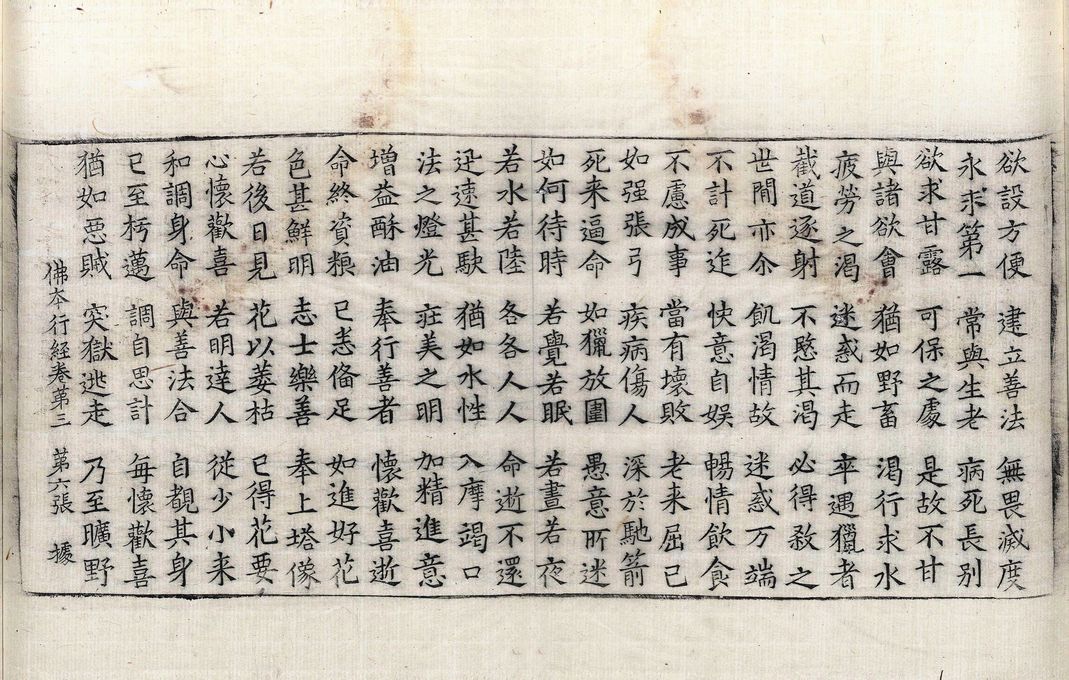 欲設方便　建立善法　無畏滅度
永求第一　常與生老　病死長别
欲求甘露　可保之處　是故不甘
與諸欲會　猶如野畜　渴行求水
疲勞之渴　迷惑而走　卒遇獵者
截道逐射　不愍其渴　必得殺之
世間亦尒　飢渴情故　迷惑万端
不計死迮　快意自娱　暢情飲食
不慮成事　當有壞敗　老来屈已
如强張弓　疾病傷人　深於馳箭
死来逼命　如獵放圍　愚意所迷
如何待時　若覺若眠　若晝若夜
若水若陸　各各人人　命逝不還
迅速甚駃　猶如水性　入摩竭口
法之燈光　莊美之明　加精進意
增益酥油　奉行善者　懷歡喜逝
命終資粮　已悉俻足　如進好花
色甚鮮明　志士樂善　奉上塔像
若後日見　花以萎枯　已得花要
心懷歡喜　若明達人　從少小来
和調身命　與善法合　自覩其身
已至朽邁　調自思計　每懷歡喜
猶如惡賊　突獄逃走　乃至曠野
佛夲行経卷第三　第六張　據